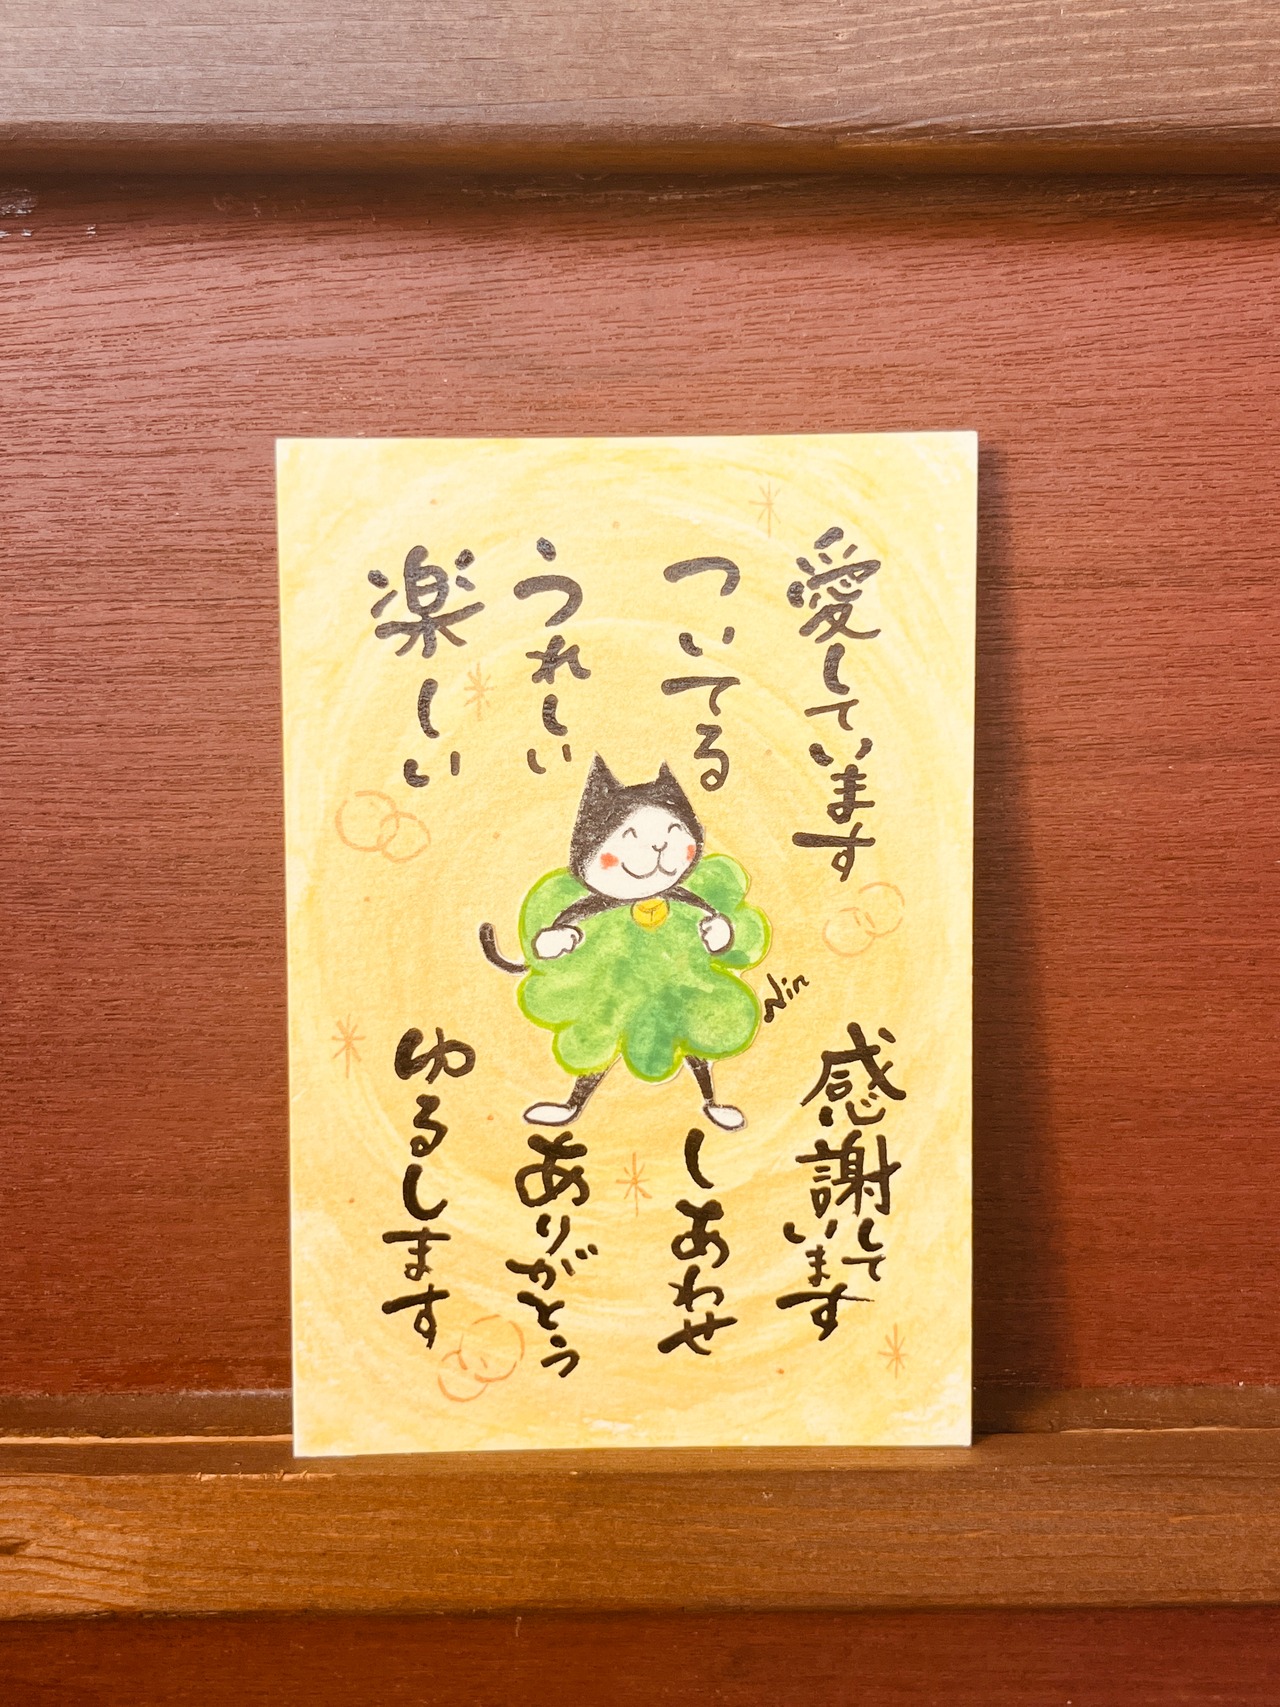 愛しています
ついてる
うれしい
楽しい
感謝しています
しあわせ
ありがとう
ゆるします
Nin